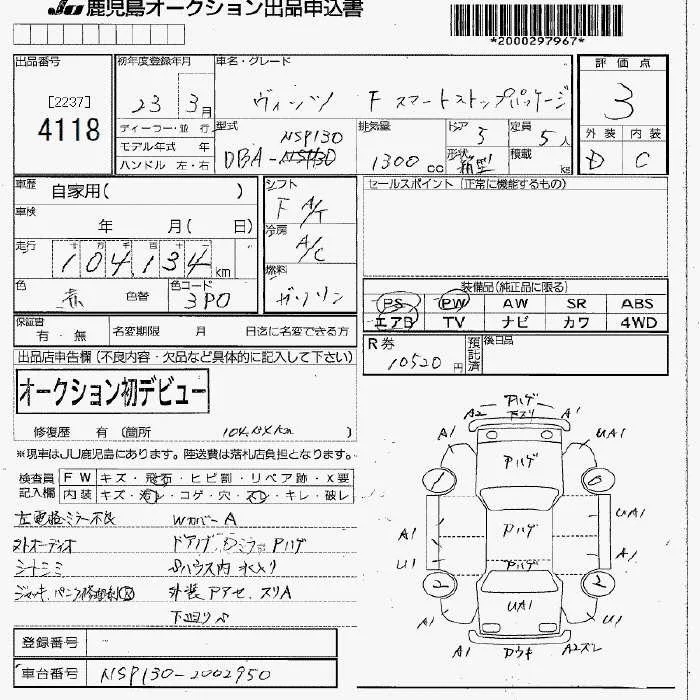 JU 鹿児島オークション出品申込書
*2000297967*
出品番号
[2237]
4118
初年度登録年月
23 3月
ディーラー・並 行
モデル年式 年
ハンドル 左・右
車名・グレード
ヴィッツ F スマートストップパッケージ
型式
NSP130
DBA-
排気量
1300 cc
ドア
5
定員
5人
形状
箱型
積載
kg
評 価 点
3
外 装 内 装
D C
車歴 自家用( )
車検
年 月( 日)
走行
十 万 千 百 十 一
104,134 km
色 赤 色替
色コード
3P0
シフト
F A/T
冷房
A/C
燃料
ガソリン
セールスポイント (正常に機能するもの)
装備品(純正品に限る)
PS PW AW SR ABS
エアB TV ナビ カワ 4WD
保証書
有 ・ 無
名変期限 月 日迄に名変できる方
R券
10520 円
預託済
後日品
出品店申告欄 (不良内容・欠品など具体的に記入して下さい)
オークション初デビュー
修復歴 有 (箇所 )
※現車はJU鹿児島にあります。陸送費は落札店負担となります。
検査員
記入欄
FW キズ・飛石・ヒビ割・リペア跡・X要
内装 キズ・汚レ・コゲ・穴・スレ・キレ・破レ
左電格ミラー不良 WカバーA
外オーディオ ドアノブ、Dミラー Pハゲ
シートシミ
ジャッキ、パンク修理剤
外装
下回り
登録番号
車台番号 NSP130-2002950
Pハゲ
A2 A1
A1 UA1
Pハゲ
A1 Pハゲ UA1
U1 A1
Pハゲ
UA1
A1 A1
A2ズレ